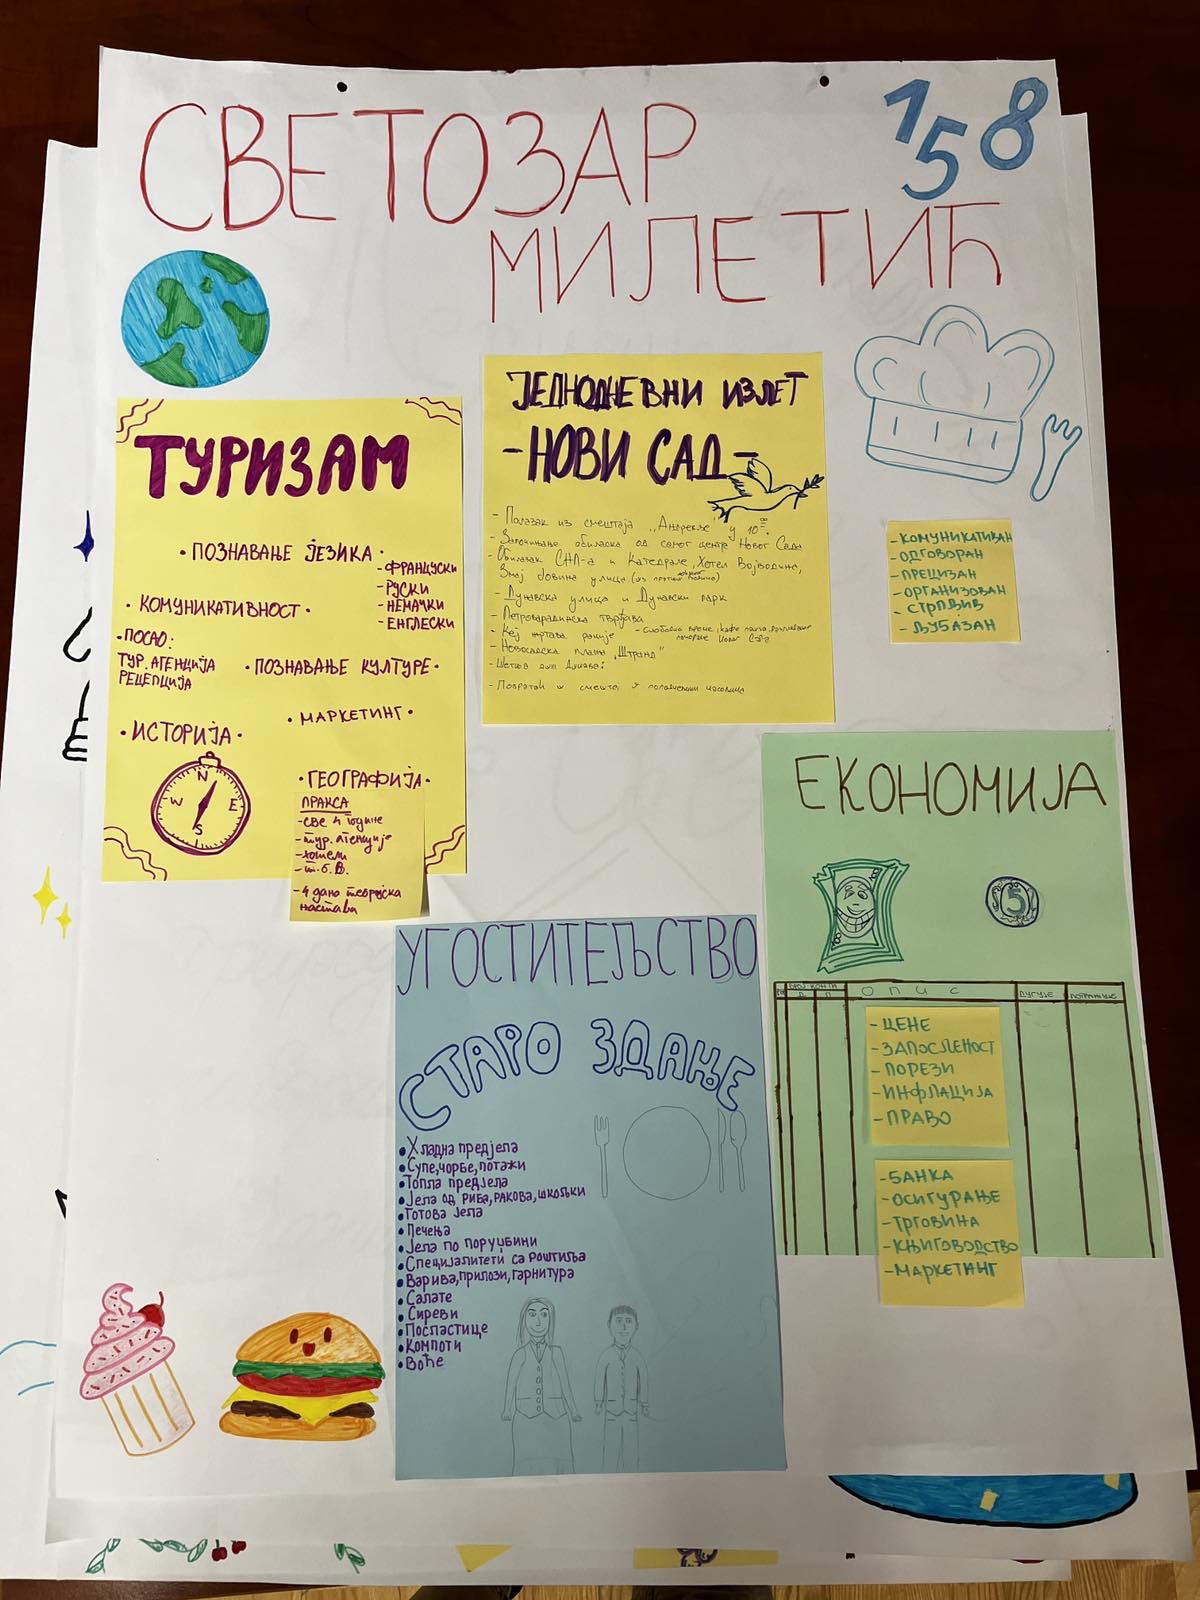 СВЕТОЗАР
МИЛЕТИЋ
158
ТУРИЗАМ
• ПОЗНАВАЊЕ ЈЕЗИКА •
- ФРАНЦУСКИ
- РУСКИ
- НЕМАЧКИ
- ЕНГЛЕСКИ
• КОМУНИКАТИВНОСТ •
• ПОСАО:
ТУР. АГЕНЦИЈА
РЕЦЕПЦИЈА
• ПОЗНАВАЊЕ КУЛТУРЕ •
• МАРКЕТИНГ •
• ИСТОРИЈА •
• ГЕОГРАФИЈА •
N
W E
S
ПРАКСА
- све 4 године
- тур. агенције
- хотели
- т.о.В.
- 4 дана теоријска
настава
ЈЕДНОДНЕВНИ ИЗЛЕТ
- НОВИ САД -
- Полазак из смештаја у 10
- Започињање обиласка од самог центра Новог Сада
- Обилазак СНП-а и Катедрале, Хотел Војводина,
Змај Јовина улица
- Дунавска улица и Дунавски парк
- Петроварадинска тврђава
- Кеј жртава рације - Слободно време
- Новосадска плажа "Штранд"
- Повратак у смештај у поподневним часовима
- КОМУНИКАТИВАН
- ОДГОВОРАН
- ПРЕЦИЗАН
- ОРГАНИЗОВАН
- СТРПЉИВ
- ЉУБАЗАН
ЕКОНОМИЈА
5
КОНТИ
Д П
ОПИС
ДУГУЈЕ
ПОТРАЖУЈЕ
- ЦЕНЕ
- ЗАПОСЛЕНОСТ
- ПОРЕЗИ
- ИНФЛАЦИЈА
- ПРАВО
- БАНКА
- ОСИГУРАЊЕ
- ТРГОВИНА
- КЊИГОВОДСТВО
- МАРКЕТИНГ
УГОСТИТЕЉСТВО
СТАРО ЗДАЊЕ
• Хладна предјела
• Супе, чорбе, потажи
• Топла предјела
• Јела од риба, ракова, шкољки
• Готова јела
• Печења
• Јела по поруџбини
• Специјалитети са роштиља
• Варива, прилози, гарнитура
• Салате
• Сиреви
• Посластице
• Компоти
• Воће